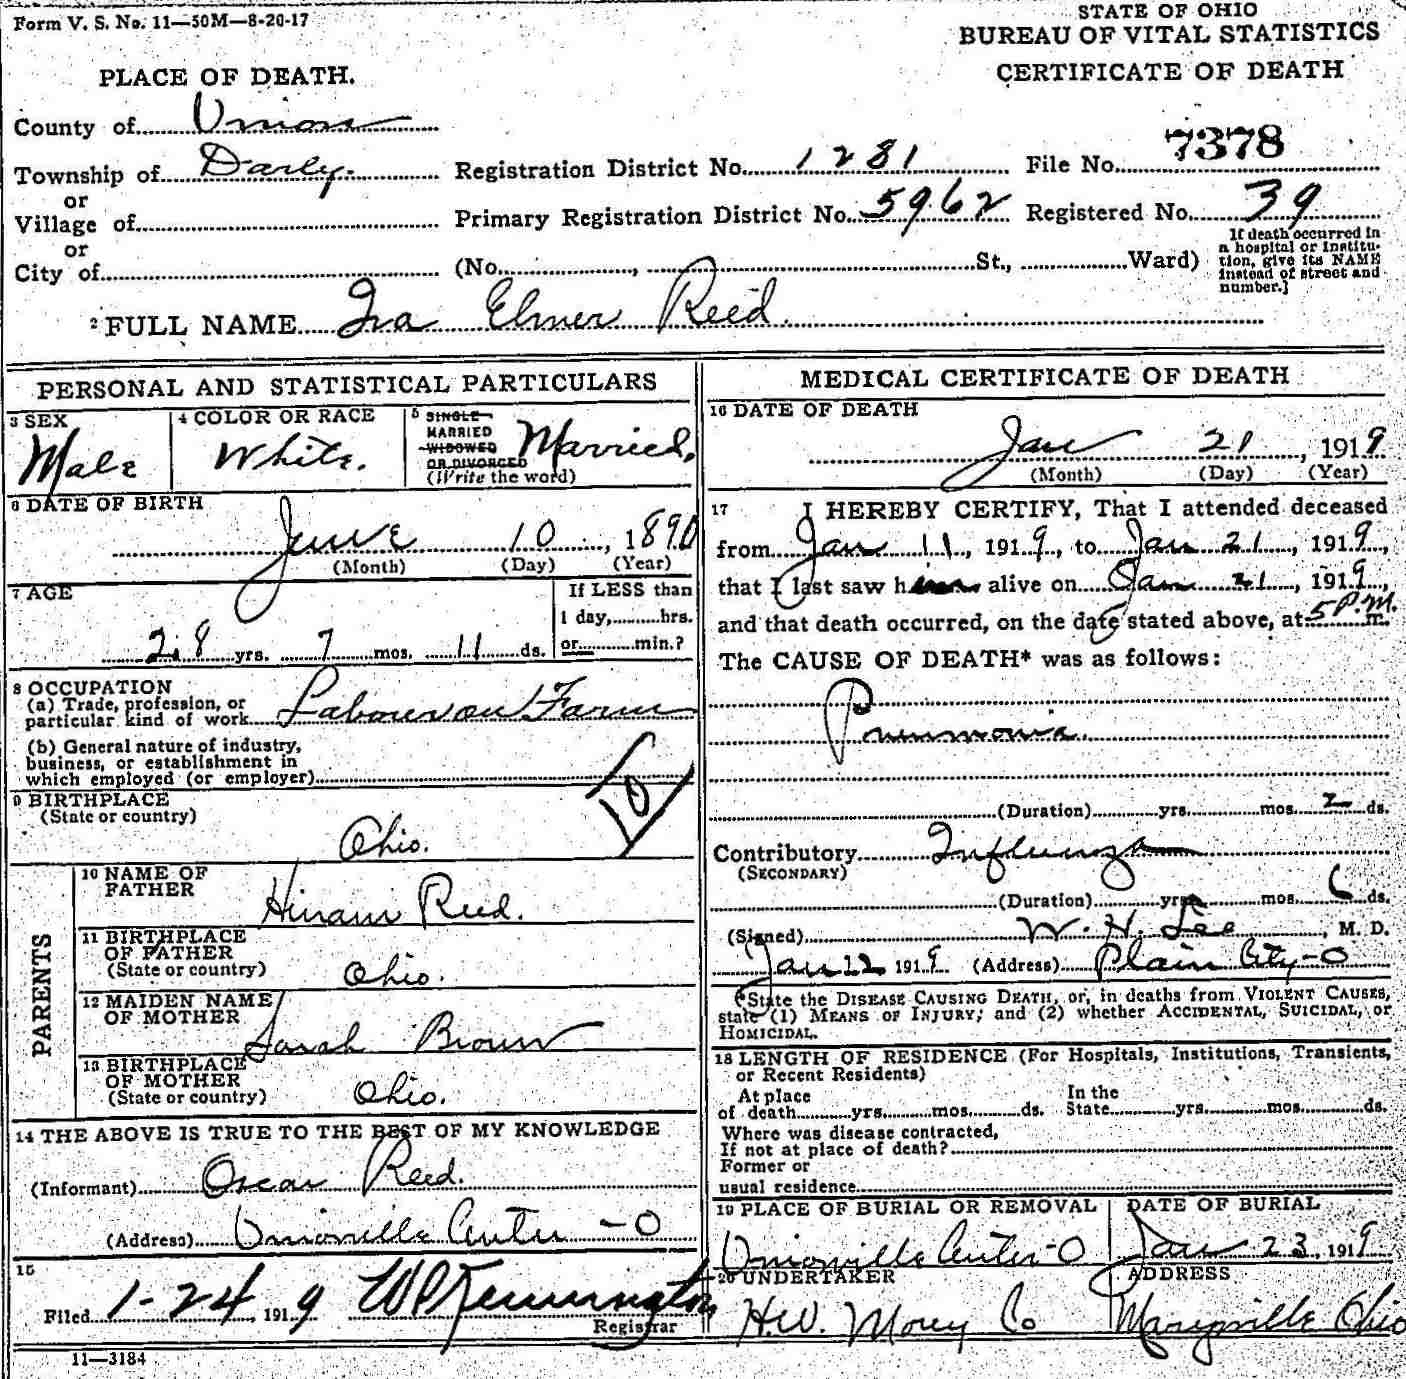 Form V. S. No. 11—50M—8-20-17
STATE OF OHIO
BUREAU OF VITAL STATISTICS
CERTIFICATE OF DEATH
PLACE OF DEATH.
County of Union
Township of Darby. Registration District No. 1281 File No. 7378
or
Village of Primary Registration District No. 5962 Registered No. 39
or
City of (No. , St., Ward)
If death occurred in
a hospital or Institu-
tion, give its NAME
instead of street and
number.]
2 FULL NAME Ira Elmer Reed.
PERSONAL AND STATISTICAL PARTICULARS
3 SEX
Male
4 COLOR OR RACE
White.
5 SINGLE
MARRIED
WIDOWED
OR DIVORCED
(Write the word)
Married.
6 DATE OF BIRTH
June 10, 1890
(Month) (Day) (Year)
7 AGE
28 yrs. 7 mos. 11 ds.
If LESS than
1 day, hrs.
or min.?
8 OCCUPATION
(a) Trade, profession, or
particular kind of work Labour on Farm
(b) General nature of industry,
business, or establishment in
which employed (or employer)
9 BIRTHPLACE
(State or country)
Ohio.
PARENTS
10 NAME OF
FATHER
Hiram Reed.
11 BIRTHPLACE
OF FATHER
(State or country)
Ohio.
12 MAIDEN NAME
OF MOTHER
Sarah Brown
13 BIRTHPLACE
OF MOTHER
(State or country)
Ohio.
14 THE ABOVE IS TRUE TO THE BEST OF MY KNOWLEDGE
(Informant) Oscar Reed.
(Address) Unionville Center -O
15
Filed 1-24, 1919
Registrar
11—3184
MEDICAL CERTIFICATE OF DEATH
16 DATE OF DEATH
Jan 21, 1919
(Month) (Day) (Year)
17 I HEREBY CERTIFY, That I attended deceased
from Jan 11, 1919, to Jan 21, 1919,
that I last saw him alive on Jan 21, 1919,
and that death occurred, on the date stated above, at 5 P.M. m.
The CAUSE OF DEATH* was as follows:
Pneumonia.
(Duration) yrs. mos. 2 ds.
Contributory Influenza
(SECONDARY)
(Duration) yrs. mos. 6 ds.
(Signed) W. H. Lee, M. D.
Jan 22 1919 (Address) Plain City-O
*State the DISEASE CAUSING DEATH, or, in deaths from VIOLENT CAUSES,
state (1) MEANS OF INJURY; and (2) whether ACCIDENTAL, SUICIDAL, or
HOMICIDAL.
18 LENGTH OF RESIDENCE (For Hospitals, Institutions, Transients,
or Recent Residents)
At place
of death yrs. mos. ds.
In the
State yrs. mos. ds.
Where was disease contracted,
If not at place of death?
Former or
usual residence
19 PLACE OF BURIAL OR REMOVAL
Unionville Center-O
DATE OF BURIAL
Jan 23, 1919
20 UNDERTAKER
H.W. Morey Co
ADDRESS
Marysville Ohio